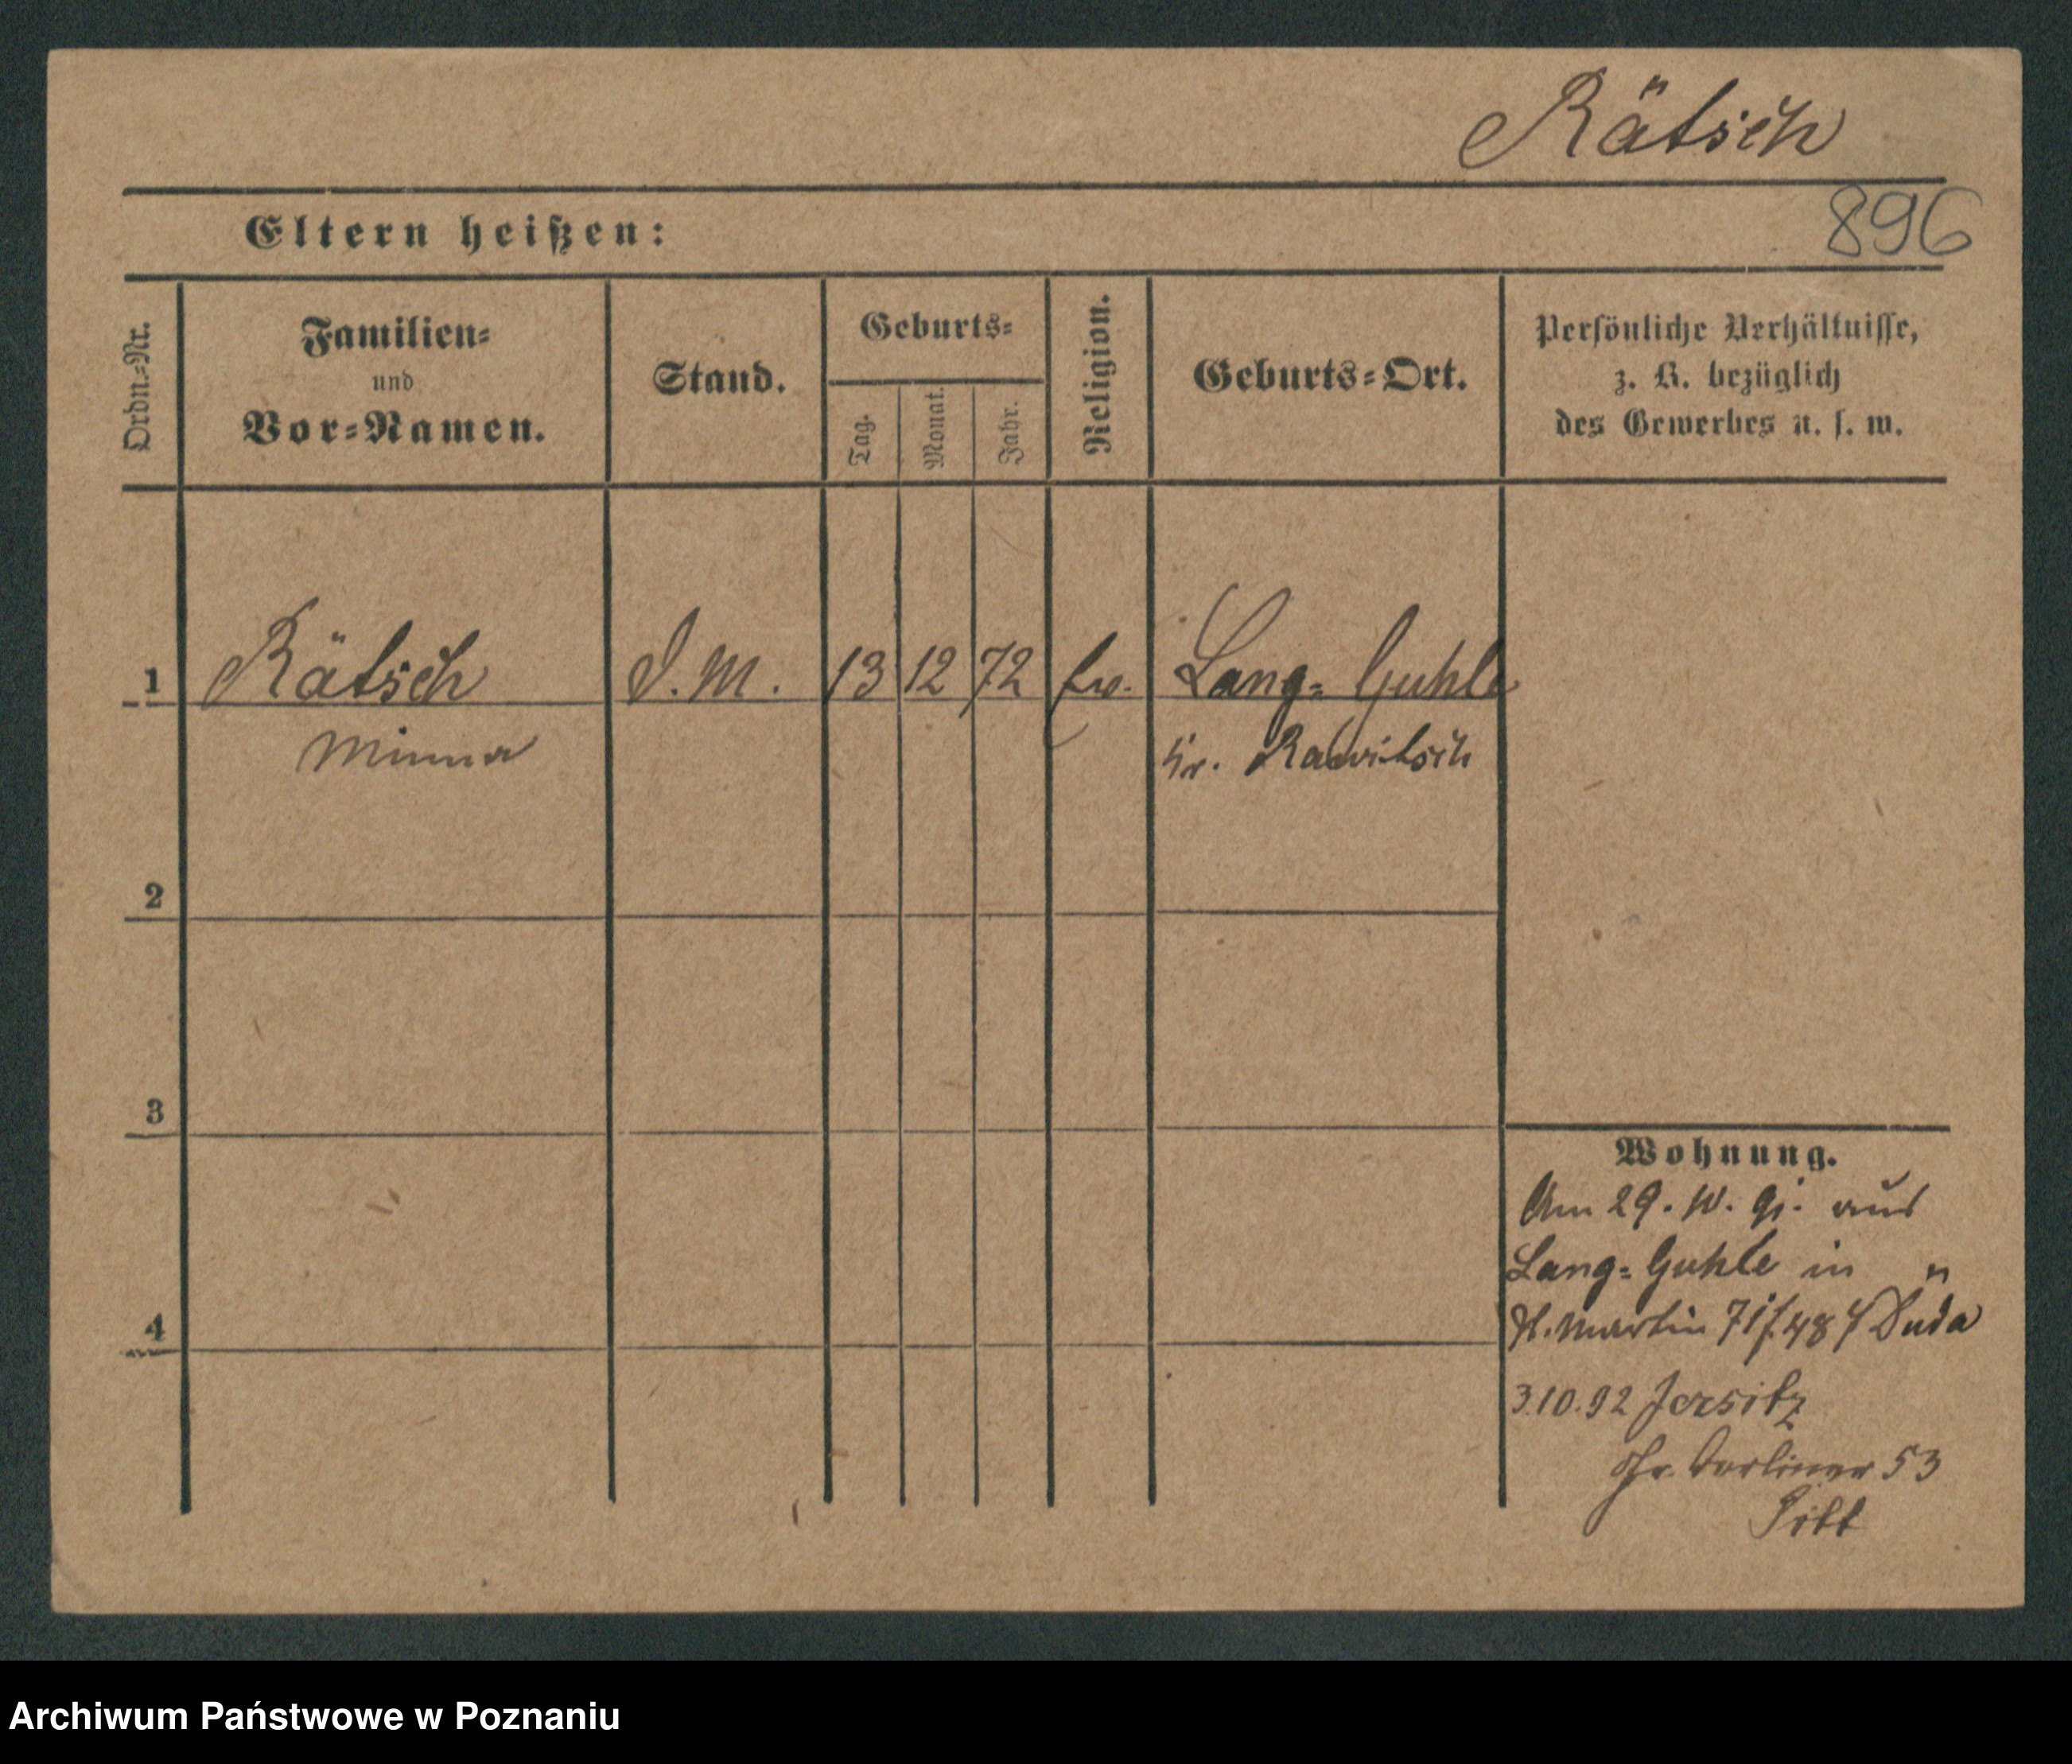 Rätsch
896
Eltern heißen:
Ordn.=Nr.
Familien=
und
Vor=Namen.
Stand.
Geburts=
Tag.
Monat.
Jahr.
Religion.
Geburts=Ort.
Persönliche Verhältnisse,
z. B. bezüglich
des Gewerbes u. s. w.
1 Rätsch D. M. 13 12 72 ev. Lang= Guhle
Minna Kr. Rawitsch
2
3
4
Wohnung.
Am 29. 10. 91. aus
Lang=Guhle in
St. Martin 71 f. 48 Duda
3.10.92 Jersitz
Gr. Berliner 53
Archiwum Państwowe w Poznaniu